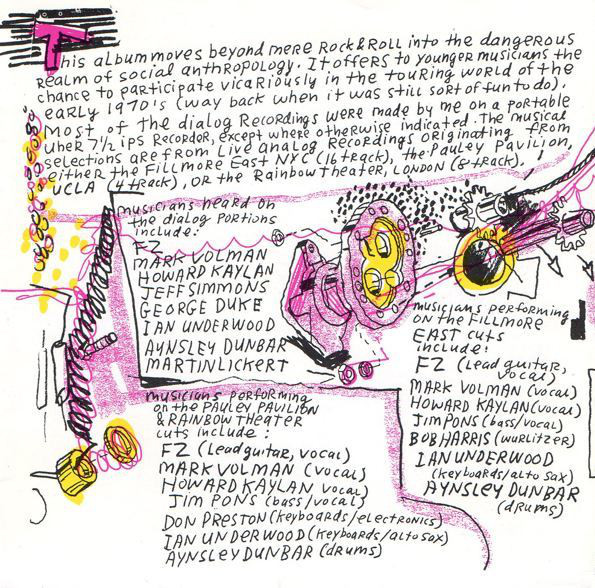 This album moves beyond mere Rock & Roll into the dangerous
realm of social anthropology. It offers to younger musicians the
chance to participate vicariously in the touring world of the
early 1970's (way back when it was still sort of fun to do).
Most of the dialog Recordings were made by me on a portable
UHER 7½ IPS Recorder, except where otherwise indicated. The musical
selections are from Live analog Recordings originating from
either the Fillmore East NYC (16 track), the Pauley Pavilion,
UCLA (4 track), OR the Rainbow Theater, LONDON (8 track).
musicians heard on
the dialog portions
include:
FZ
MARK VOLMAN
HOWARD KAYLAN
JEFF SIMMONS
GEORGE DUKE
IAN UNDERWOOD
AYNSLEY DUNBAR
MARTIN LICKERT
musicians performing
on the PAULEY PAVILION
& RAINBOW THEATER
cuts include:
FZ (Lead guitar, vocal)
MARK VOLMAN (vocal)
HOWARD KAYLAN vocal)
JIM PONS (bass/vocal)
DON PRESTON (keyboards/electronics)
IAN UNDERWOOD (keyboards/alto sax)
AYNSLEY DUNBAR (drums)
musicians performing
on the FILLMORE
EAST cuts
include:
FZ (lead guitar,
vocal)
MARK VOLMAN (vocal)
HOWARD KAYLAN (vocal)
JIM PONS (bass/vocal)
BOB HARRIS (wurlitzer)
IAN UNDERWOOD
(keyboards/alto sax)
AYNSLEY DUNBAR
(drums)